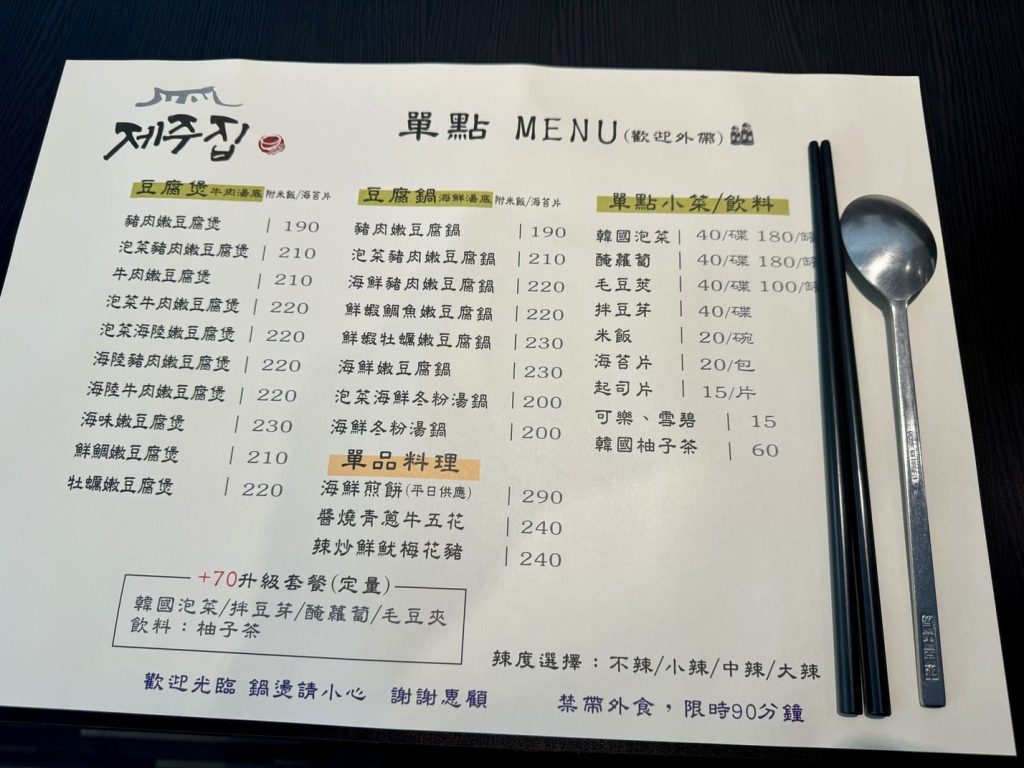 제주집
單點 MENU(歡迎外帶)
豆腐煲牛肉湯底 附米飯/海苔片
豬肉嫩豆腐煲 | 190
泡菜豬肉嫩豆腐煲 | 210
牛肉嫩豆腐煲 | 210
泡菜牛肉嫩豆腐煲 | 220
泡菜海陸嫩豆腐煲 | 220
海陸豬肉嫩豆腐煲 | 220
海陸牛肉嫩豆腐煲 | 220
海味嫩豆腐煲 | 230
鮮鯛嫩豆腐煲 | 210
牡蠣嫩豆腐煲 | 220
豆腐鍋海鮮湯底 附米飯/海苔片
豬肉嫩豆腐鍋 | 190
泡菜豬肉嫩豆腐鍋 | 210
海鮮豬肉嫩豆腐鍋 | 220
鮮蝦鯛魚嫩豆腐鍋 | 220
鮮蝦牡蠣嫩豆腐鍋 | 230
海鮮嫩豆腐鍋 | 230
泡菜海鮮冬粉湯鍋 | 200
海鮮冬粉湯鍋 | 200
單品料理
海鮮煎餅(平日供應) | 290
醬燒青蔥牛五花 | 240
辣炒鮮魷梅花豬 | 240
單點小菜/飲料
韓國泡菜 | 40/碟 180/罐
醃蘿蔔 | 40/碟 180/罐
毛豆莢 | 40/碟 100/罐
拌豆芽 | 40/碟
米飯 | 20/碗
海苔片 | 20/包
起司片 | 15/片
可樂、雪碧 | 15
韓國柚子茶 | 60
+70升級套餐(定量)
韓國泡菜/拌豆芽/醃蘿蔔/毛豆夾
飲料：柚子茶
辣度選擇：不辣/小辣/中辣/大辣
歡迎光臨 鍋燙請小心 謝謝惠顧
禁帶外食，限時90分鐘